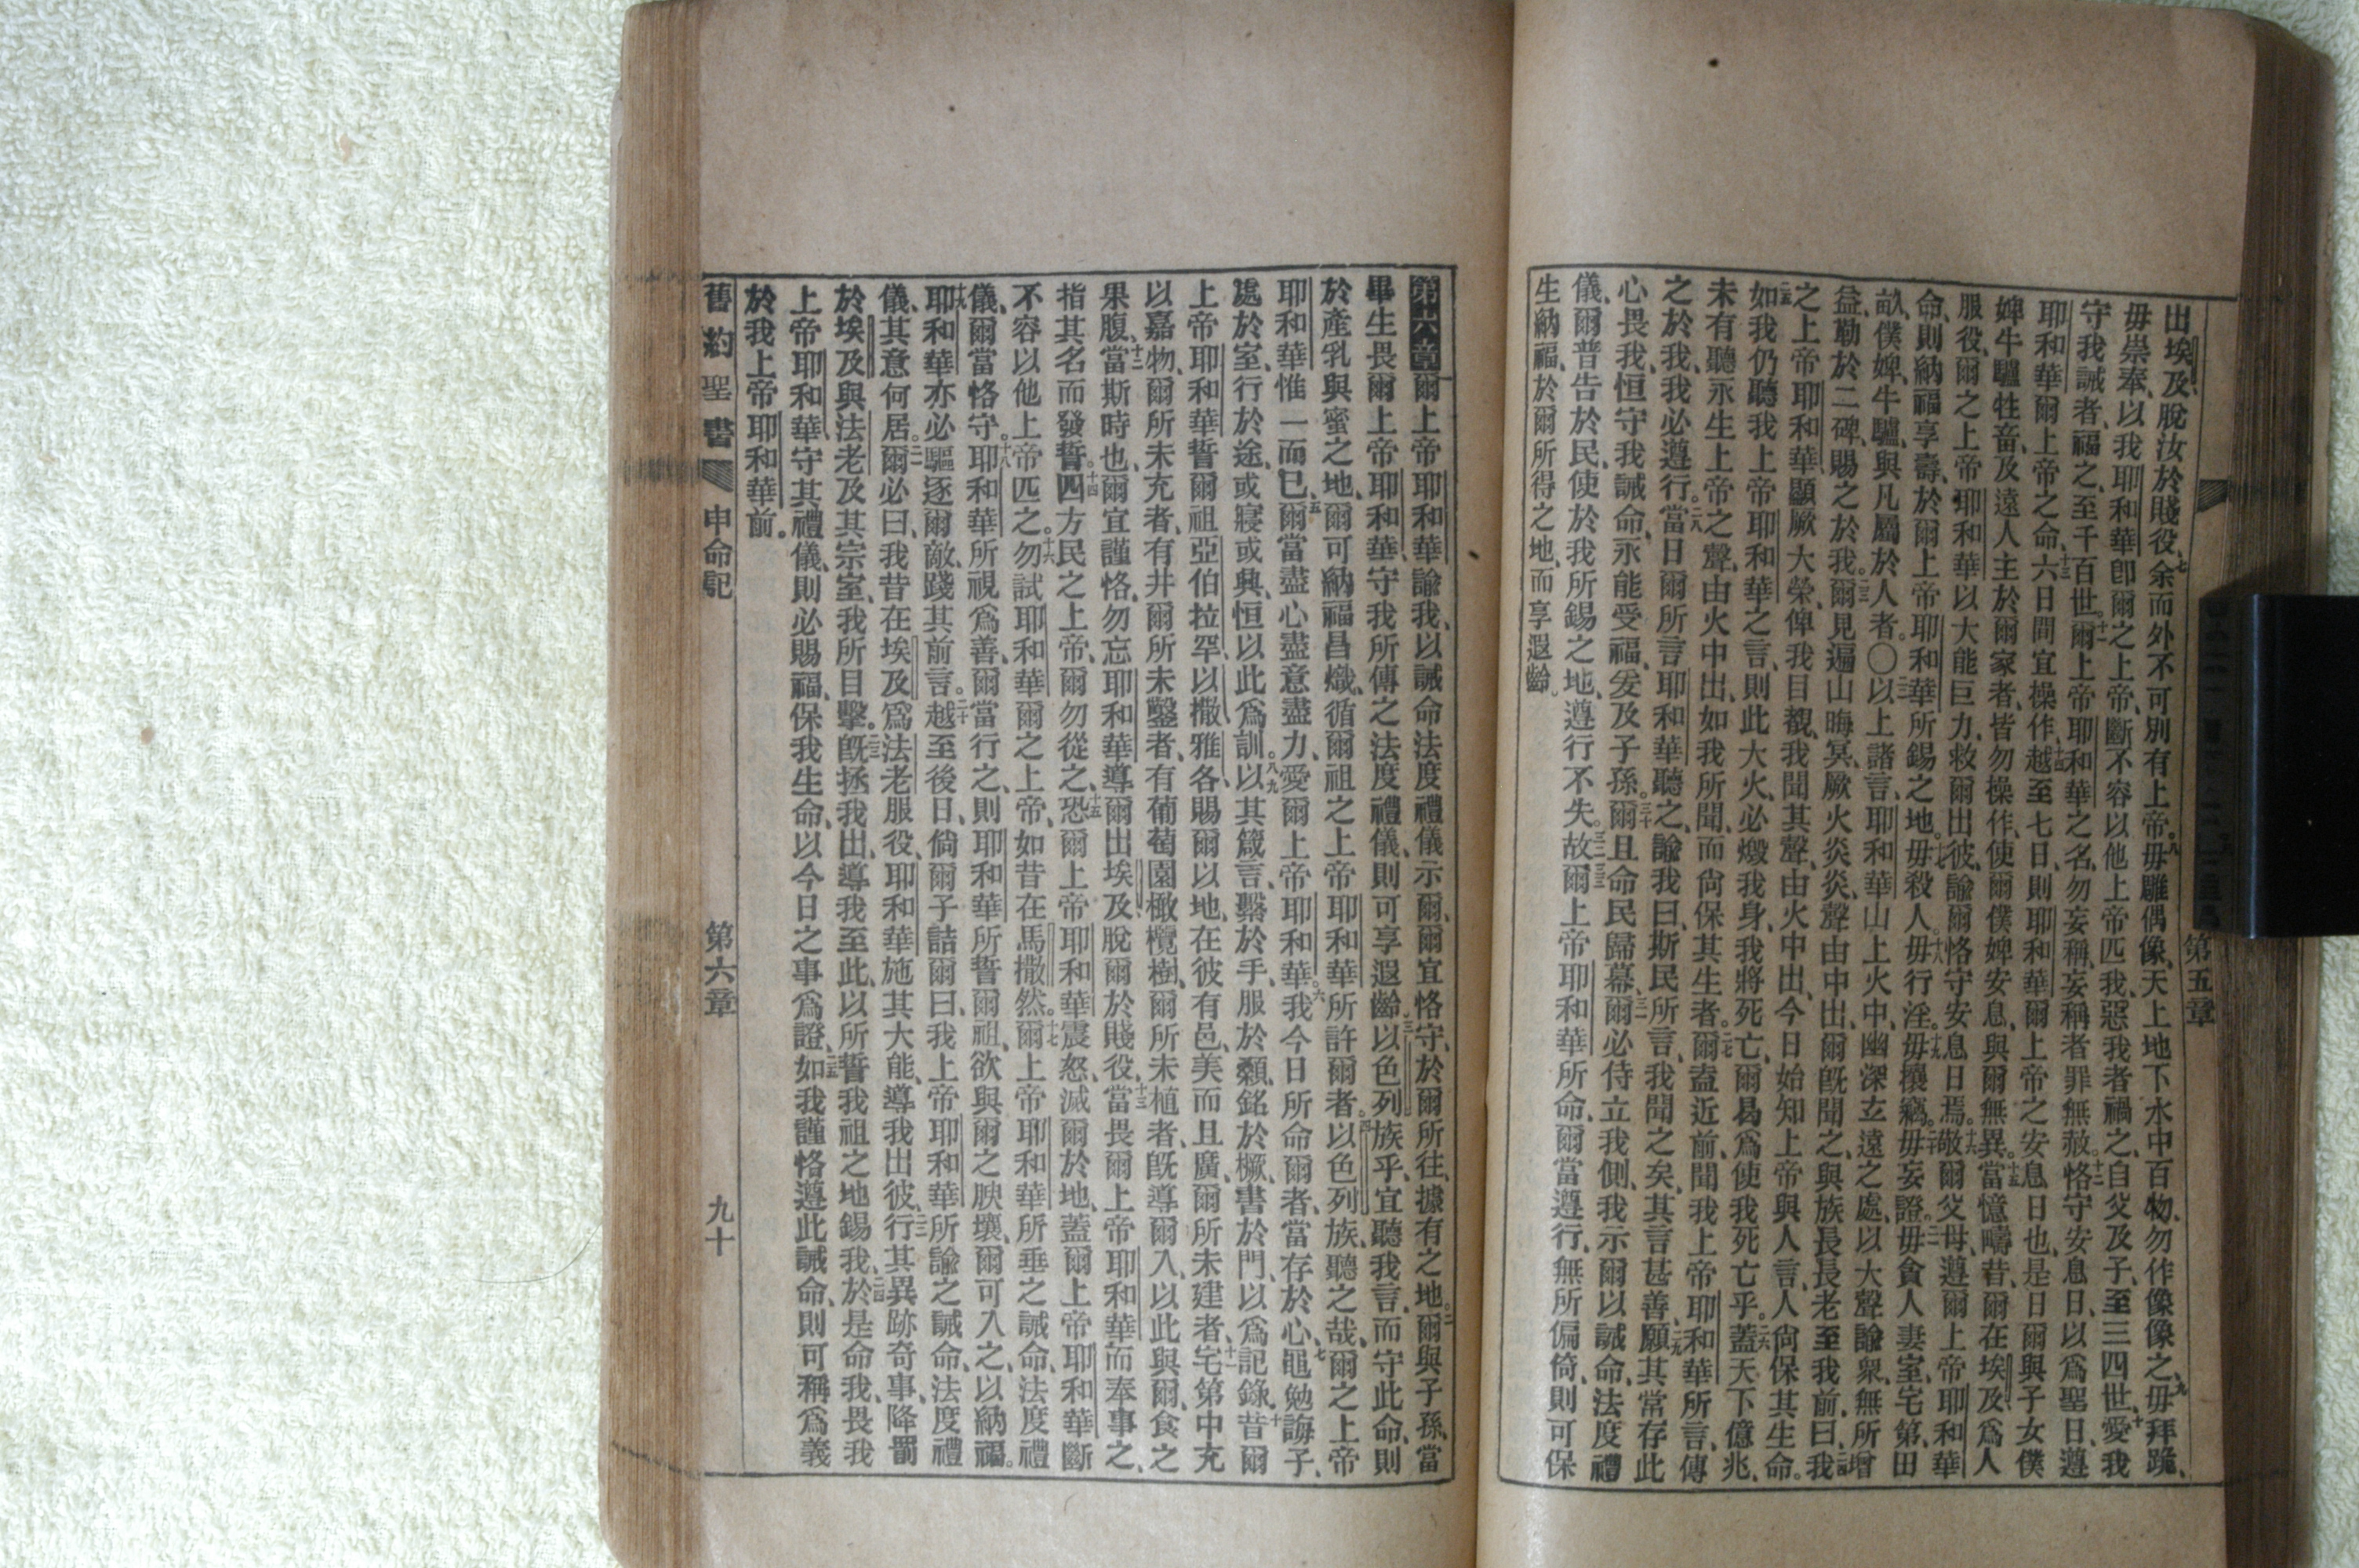 第五章
出埃及脫汝於賤役、七余而外不可別有上帝。八毋雕偶像、天上地下水中百物、勿作像像之、九毋拜跪、
毋崇奉、以我耶和華卽爾之上帝、斷不容以他上帝匹我、惡我者禍之、自父及子、至三四世、十愛我
守我誡者、福之、至千百世。十一爾上帝耶和華之名、勿妄稱、妄稱者罪無赦。十二恪守安息日、以爲聖日、遵
耶和華爾上帝之命、十三六日間宜操作、十四越至七日、則耶和華爾上帝之安息日也、是日爾與子女僕
婢牛驢牲畜、及遠人主於爾家者、皆勿操作、使爾僕婢安息、與爾無異。十五當憶疇昔、爾在埃及爲人
服役、爾之上帝耶和華以大能巨力、救爾出彼、諭爾恪守安息日焉。十六敬爾父母、遵爾上帝耶和華
命、則納福享壽、於爾上帝耶和華所錫之地。十七毋殺人。十八毋行淫。十九毋攘竊。二十毋妄證。二一毋貪人妻室、宅第、田
畝、僕婢、牛驢、與凡屬於人者。○二二以上諸言、耶和華山上火中、幽深玄遠之處、以大聲諭衆、無所增
益、勒於二碑、賜之於我。二三爾見遍山晦冥、厥火炎炎、聲由中出、爾旣聞之、與族長長老至我前曰、二四我
之上帝耶和華、顯厥大榮、俾我目覩、我聞其聲、由火中出、今日始知上帝與人言、人尙保其生命。
二五如我仍聽我上帝耶和華之言、則此大火、必燬我身、我將死亡、爾曷爲使我死亡乎。二六蓋天下億兆、
未有聽永生上帝之聲、由火中出、如我所聞、而尙保其生者。二七爾盍近前、聞我上帝耶和華所言、傳
之於我、我必遵行。二八當日爾所言、耶和華聽之、諭我曰、斯民所言、我聞之矣、其言甚善、二九願其常存此
心、畏我、恒守我誡命、永能受福、爰及子孫。三十爾且命民歸幕、三一爾必侍立我側、我示爾以誡命、法度禮
儀、爾普告於民、使於我所錫之地、遵行不失。三二三三故爾上帝耶和華所命、爾當遵行、無所偏倚、則可保
生納福、於爾所得之地、而享遐齡。
第六章 爾上帝耶和華諭我、以誡命法度禮儀示爾、爾宜恪守、於爾所往、據有之地。二爾與子孫、當
畢生畏爾上帝耶和華、守我所傳之法度禮儀、則可享遐齡、三以色列族乎、宜聽我言、而守此命、則
於產乳與蜜之地、爾可納福昌熾、循爾祖之上帝耶和華所許爾者。四以色列族、聽之哉、爾之上帝
耶和華惟一而已、五爾當盡心盡意盡力、愛爾上帝耶和華。六我今日所命爾者、當存於心、七黽勉誨子、
處於室、行於途、或寢或興、恒以此爲訓。八九以其箴言、繫於手、服於顙、銘於橛、書於門、以爲記錄、十昔爾
上帝耶和華、誓爾祖亞伯拉罕、以撒、雅各、賜爾以地、在彼有邑、美而且廣、爾所未建者、十一宅第中充
以嘉物、爾所未充者、有井爾所未鑿者、有葡萄園橄欖樹、爾所未植者、旣導爾入、以此與爾、食之
果腹、十二當斯時也、爾宜謹恪、勿忘耶和華、導爾出埃及、脫爾於賤役、十三當畏爾上帝耶和華而奉事之、
指其名而發誓。十四四方民之上帝、爾勿從之、十五恐爾上帝耶和華震怒、滅爾於地、蓋爾上帝耶和華斷
不容以他上帝匹之。十六勿試耶和華爾之上帝、如昔在馬撒然。十七爾上帝耶和華所垂之誡命、法度禮
儀、爾當恪守。十八耶和華所視爲善、爾當行之、則耶和華所誓爾祖、欲與爾之腴壤、爾可入之、以納福。
十九耶和華亦必驅逐爾敵、踐其前言。二十越至後日、倘爾子詰爾曰、我上帝耶和華所諭之誡命、法度禮
儀、其意何居。二一爾必曰、我昔在埃及爲法老服役、耶和華施其大能、導我出彼、二二行其異跡奇事、降罰
於埃及、與法老及其宗室、我所目擊。二三旣拯我出、導我至此、以所誓我祖之地錫我、二四於是命我、畏我
上帝耶和華、守其禮儀、則必賜福、保我生命、以今日之事爲證、二五如我謹恪遵此誡命、則可稱爲義
於我上帝耶和華前。
舊約聖書 申命記 第六章 九十